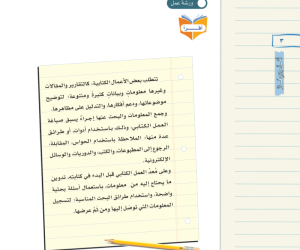 ورشة عمل
اقرأ
تتطلب بعض الأعمال الكتابية، كالتقارير والمقالات
وغيرها معلومات وبيانات كثيرة ومتنوعة؛ لتوضيح
موضوعاتها، ودعم أفكارها، والتدليل على مظاهرها.
وجمع المعلومات والبحث عنها إجراء يسبق صياغة
العمل الكتابي، وذلك باستخدام أدوات أو طرائق
عدة منها: الملاحظة باستخدام الحواس، المقابلة،
الرجوع إلى المطبوعات، والكتب، والدوريات والوسائل
الإلكترونية.
وعلى مُعد العمل الكتابي قبل البدء في كتابته، تدوين
ما يحتاج إليه من معلومات، باستعمال أسئلة بحثية
واضحة، واستخدام طرائق البحث المناسبة؛ لتسجيل
المعلومات التي توصل إليها ومن ثم عرضها.
٣